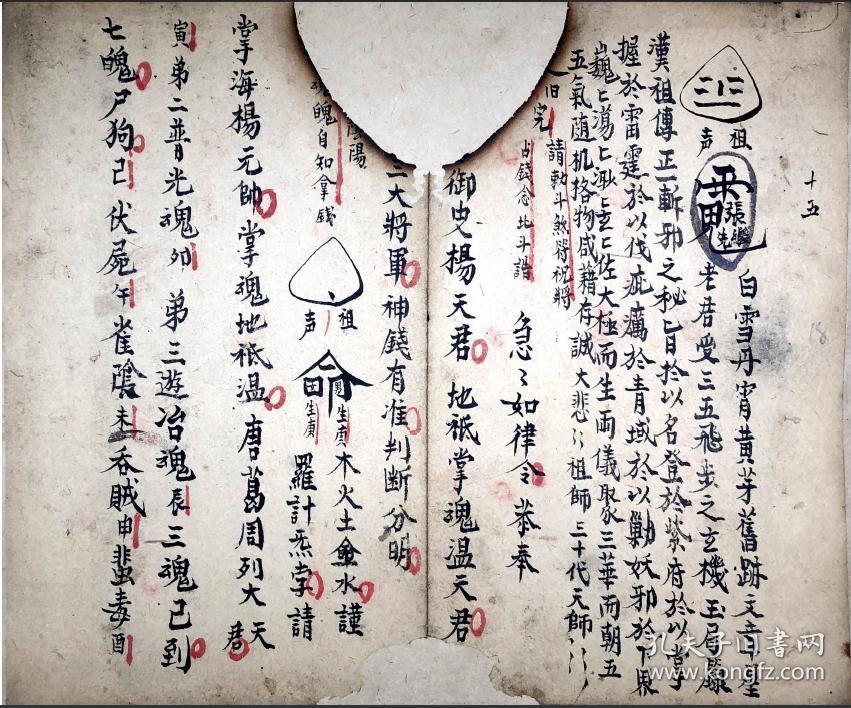 十五
18
祖
声
張
先
白雪丹霄黃芽舊跡文章聖
老君受三五飛步之玄機玉局
漢祖傳正一斬邪之秘旨於以名登於紫府於以掌
握於雷霆於以伐疵癘於青域於以勦妖邪於下界
巍巍蕩蕩渺渺玄玄佐太極而生兩儀聚三華而朝五
五氣随机格物咸藉存誠大悲々祖師三十代天師々
旧完 請勅斗煞符祝將
占錢念北斗諧 急々如律令恭奉
御史楊天君 地祇掌魂温天君
三大將軍 神錢有准判断分明
陰陽
魂魄自知拿錢
祖
声
命
男生庚
生庚
木火土金水謹
羅計炁孛請
掌海楊元帥 掌魂地祇温 唐葛周列大天君
寅 弟二普光魂 卯 弟三遊冶魂 辰 三魂已到
七魄尸狗巳 伏屍午 雀陰未 吞賊申 蜚毒酉
孔夫子旧書网
www.kongfz.com